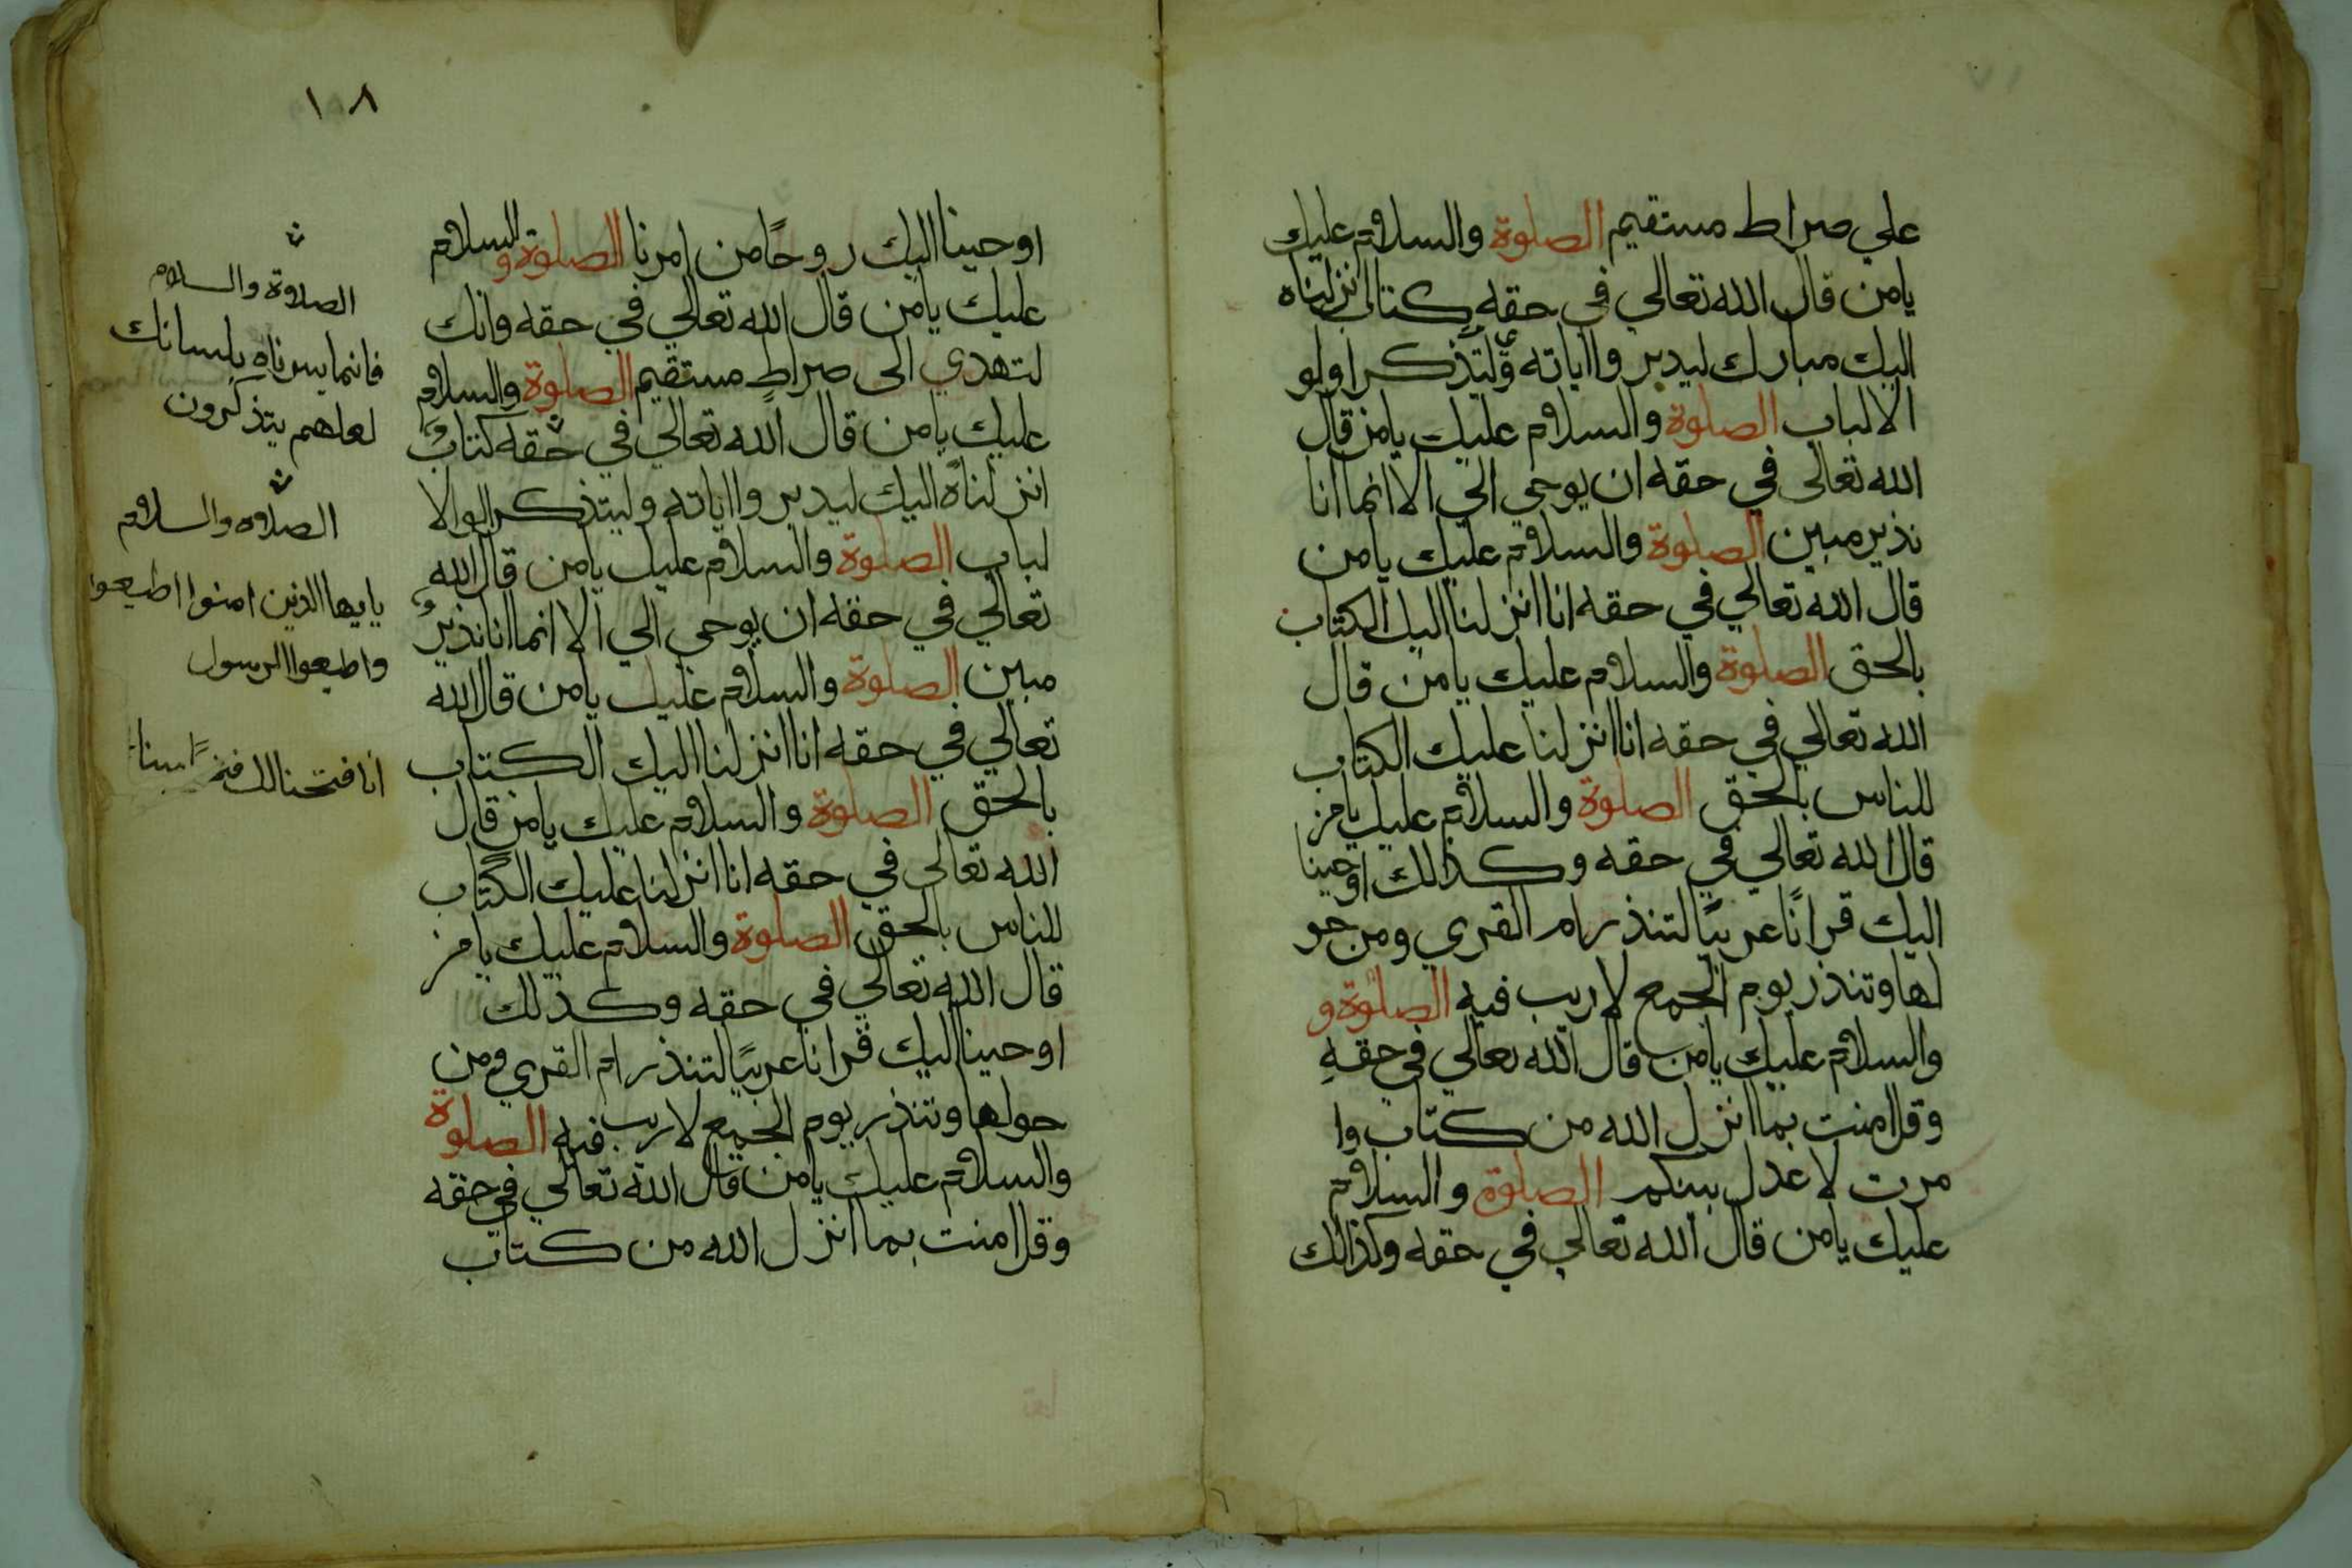 علي صراط مستقيم الصلوة والسلام عليك
يامن قال الله تعالي في حقه كتاب انزلناه
اليك مبارك ليدبروا اياته وليتذكر اولو
الالباب الصلوة والسلام عليك يامن قال
الله تعالى في حقه ان يوحي الي الا انما انا
نذير مبين الصلوة والسلام عليك يامن
قال الله تعالي في حقه انا انزلنا اليك الكتاب
بالحق الصلوة والسلام عليك يامن قال
الله تعالي في حقه انا انزلنا عليك الكتاب
للناس بالحق الصلوة والسلام عليك يامن
قال الله تعالي في حقه وكذالك اوحينا
اليك قرانًا عربيًا لتنذر ام القري ومن حو
لها وتنذر يوم الجمع لا ريب فيه الصلوة و
والسلام عليك يامن قال الله تعالي في حقهِ
وقل امنت بما انزل الله من كتاب وا
مرت لاعدل بينكم الصلوة والسلام
عليك يامن قال الله تعالي في حقه وكذالك
١٠٨
اوحينا اليك روحًا من امرنا الصلوة والسلام
عليك يامن قال الله تعالي في حقه وانك
لتهدي الى صراطٍ مستقيم الصلوة والسلام
عليك يامن قال الله تعالي في حقه كتابٌ
انزلناه اليك ليدبروا اياته وليتذكر الوالا
لباب الصلوة والسلام عليك يامن قال الله
تعالي في حقه ان يوحي الي الا انما انا نذيرٌ
مبين الصلوة والسلام عليك يامن قال الله
تعالي في حقه انا انزلنا اليك الكتاب
بالحق الصلوة والسلام عليك يامن قال
الله تعالى في حقه انا انزلنا عليك الكتاب
للناس بالحق الصلوة والسلام عليك يامن
قال الله تعالي في حقه وكذلك
اوحينا اليك قرانا عربيًا لتنذر ام القري ومن
حولها وتنذر يوم الجمع لا ريب فيه الصلوة
والسلام عليك يامن قال الله تعالي في حقه
وقل امنت بما انزل الله من كتاب
الصلاوة والسلام
فانما يسرناه بلسانك
لعلهم يتذكرون
الصلاوه والسلام
يايها الذين امنوا اطيعوا
واطيعوا الرسول
انا فتحنا لك مبينا